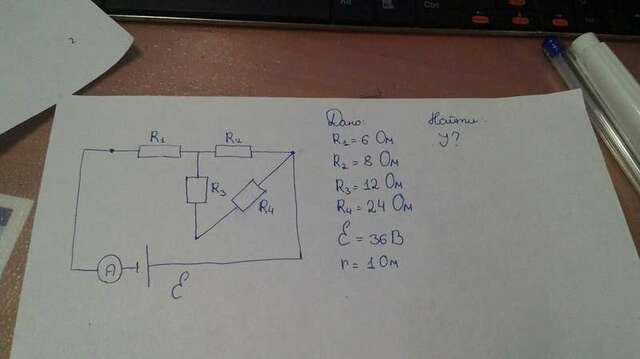 2
Ctrl
R₁ R₂
R₃
R₄
A
Ɛ
Дано:
R₁ = 6 Ом
R₂ = 8 Ом
R₃ = 12 Ом
R₄ = 24 Ом
Ɛ = 36 В
r = 1 Ом
Найти:
У?